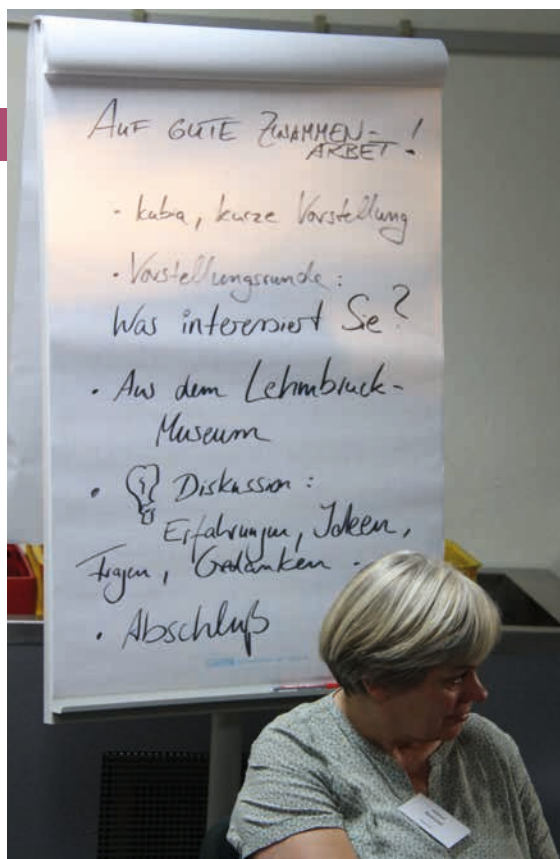 AUF GUTE ZUSAMMEN-
ARBEIT!
- kubia, kurze Vorstellung
• Vorstellungsrunde:
Was interessiert Sie?
• Aus dem Lehmbruck-
Museum
• Diskussion:
Erfahrungen, Ideen,
Fragen, Gedanken.
• Abschluß